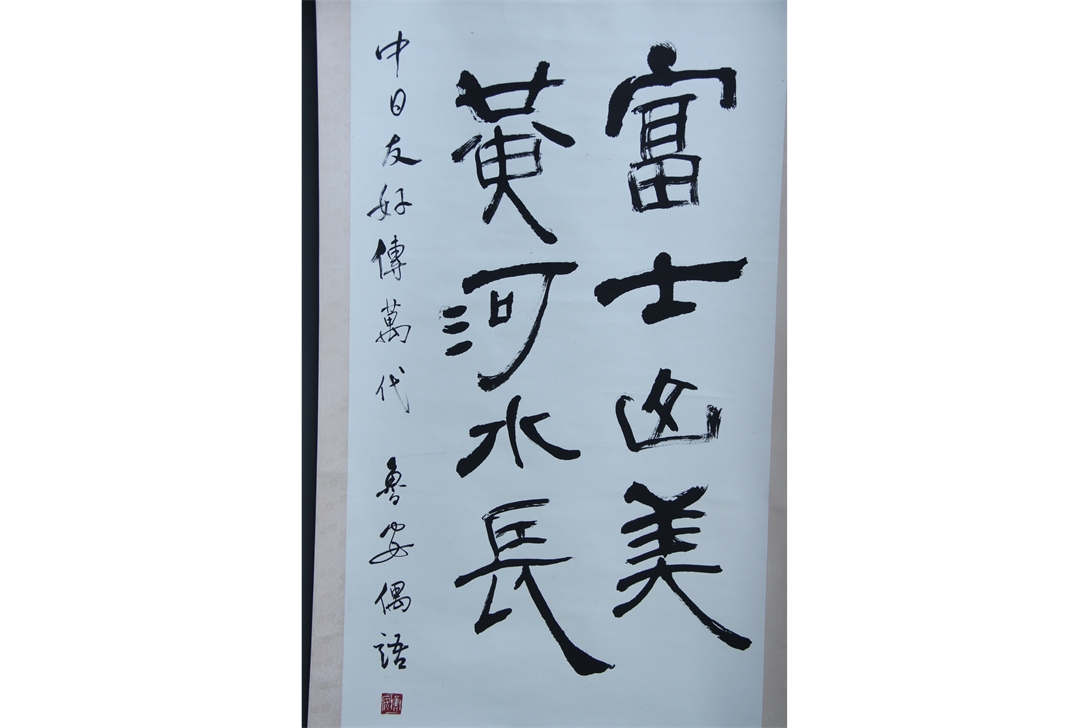 富士山美
黃河水長
中日友好傳萬代 魯安偶語